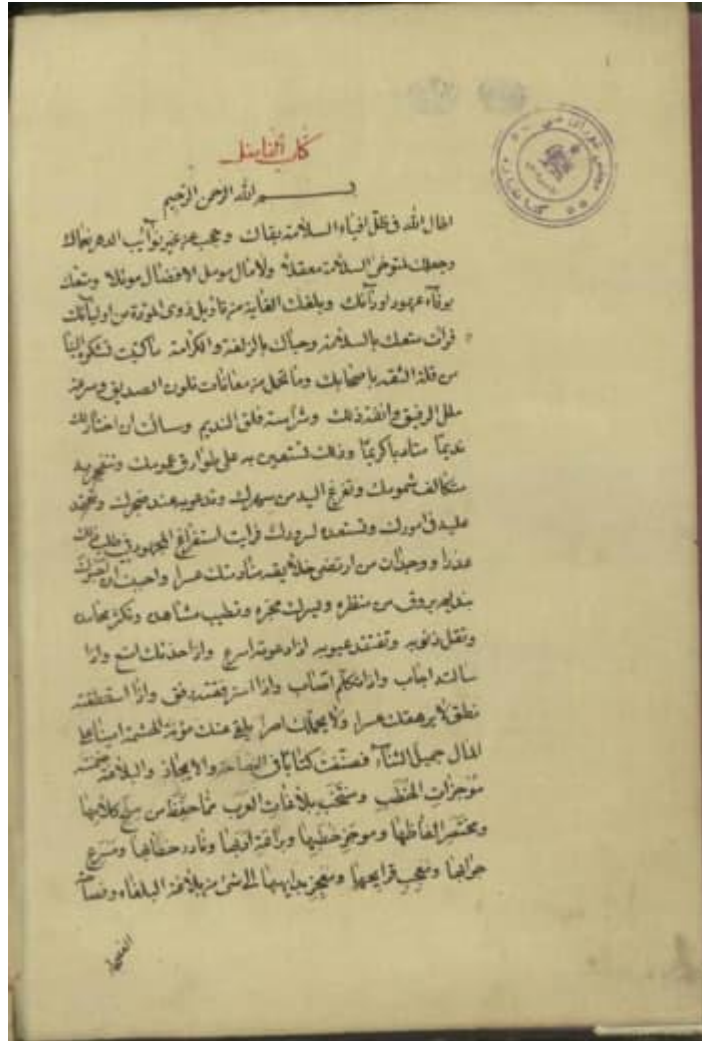 كتاب الفاضل
بسم الله الرحمن الرحيم
اطال الله في ظل افياء السلامة بقاك وحجب عن غير نوآئب الدهر نعماك
وجعلك لمتوخى السلامة معقلا ولامال مومل الافضال موئلا ومتعك
بوفآء عهود اودآئك وبلغك الغاية من تاويل ذوى المودة من اوليآئك
قرات متعك بالسلامة وحباك بالزلفة والكرامة ماكتبت تشكو الينا
من قلة الثقة باصحابك وما تحمل من معانات تلون الصديق وسرعة
ملل الرفيق وشراسة خلق النديم وسالت ان اختار لك
نديما متادبا كريما وذلك لتستعين به على طوارق همومك وتنفرج به
متكاثف غمومك وتفزع اليه من سهرك وتدعو به عند ضجرك وتعتمد
عليه في امورك وتستعده لسرورك فرايت استفراغ المجهود في طلب ذلك
عذرا ووجدان من ارتضى خلائقه منادمتك عسرا واحببت ان
بنديم يروق من منظره ويسرك مخبره وتطيب مشاهده وتكثر محامده
وتقل ذنوبه وتفتقد عيوبه اذا دعوته اسرع واذا حدثتك استمع واذا
سالته اجاب واذا تكلم اصاب واذا استرفقته رفق واذا استنطقته
نطق لا يرهقك عسرا ولا يحملك اصرا يلقي عنك مؤنة الحشمة
المال جميل الثناء فصنفت كتابا في الفصاحة والايجاز والبلاغة ضمنته
موجزات الخطب ومنتخب بلاغات العرب مما حفظ من كلامها
ومختصر الفاظها وموجز خطبها وبراعة ادبها ونادر خطابها ومسرع
جوابها ومعجب قرايحها ومعجز بدايهها الى شئ من بلاغة البلغاء وفصاحة
الفصحاء